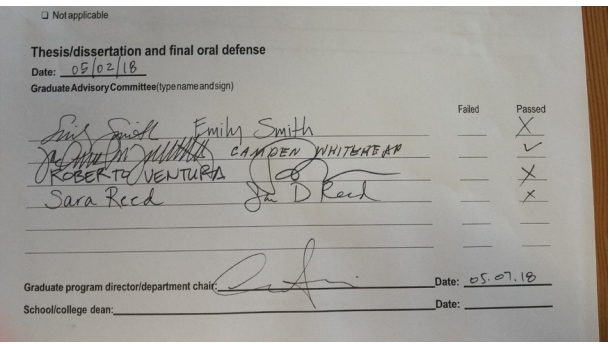 ☐ Not applicable
Thesis/dissertation and final oral defense
Date: 05/02/18
Graduate Advisory Committee (type name and sign)
Failed Passed
Emily Smith Emily Smith X
CAMDEN WHITEHEAD ✓
ROBERTO VENTURA X
Sara Reed Sara D Reed X
Graduate program director/department chair: Date: 05.07.18
School/college dean: Date: